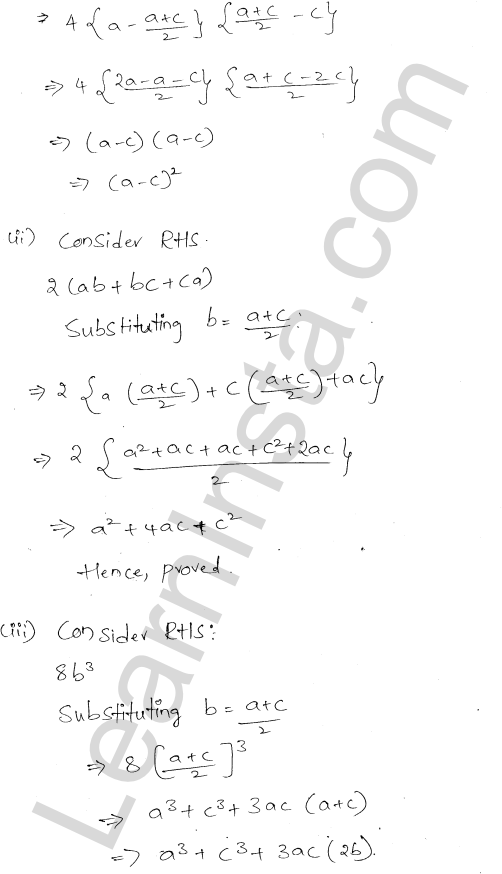 ⇒ 4 {a - (a+c)/2} {(a+c)/2 - c}
⇒ 4 {(2a-a-c)/2} {(a+c-2c)/2}
⇒ (a-c) (a-c)
⇒ (a-c)²
(ii) Consider RHS.
2 (ab + bc + ca)
Substituting b = (a+c)/2 :
⇒ 2 {a ((a+c)/2) + c ((a+c)/2) + ac}
⇒ 2 {(a² + ac + ac + c² + 2ac)/2}
⇒ a² + 4ac + c²
Hence, proved.
(iii) Consider RHS:
8b³
Substituting b = (a+c)/2
⇒ 8 [(a+c)/2]³
⇒ a³ + c³ + 3ac (a+c)
⇒ a³ + c³ + 3ac (2b).
LearnInsta.com